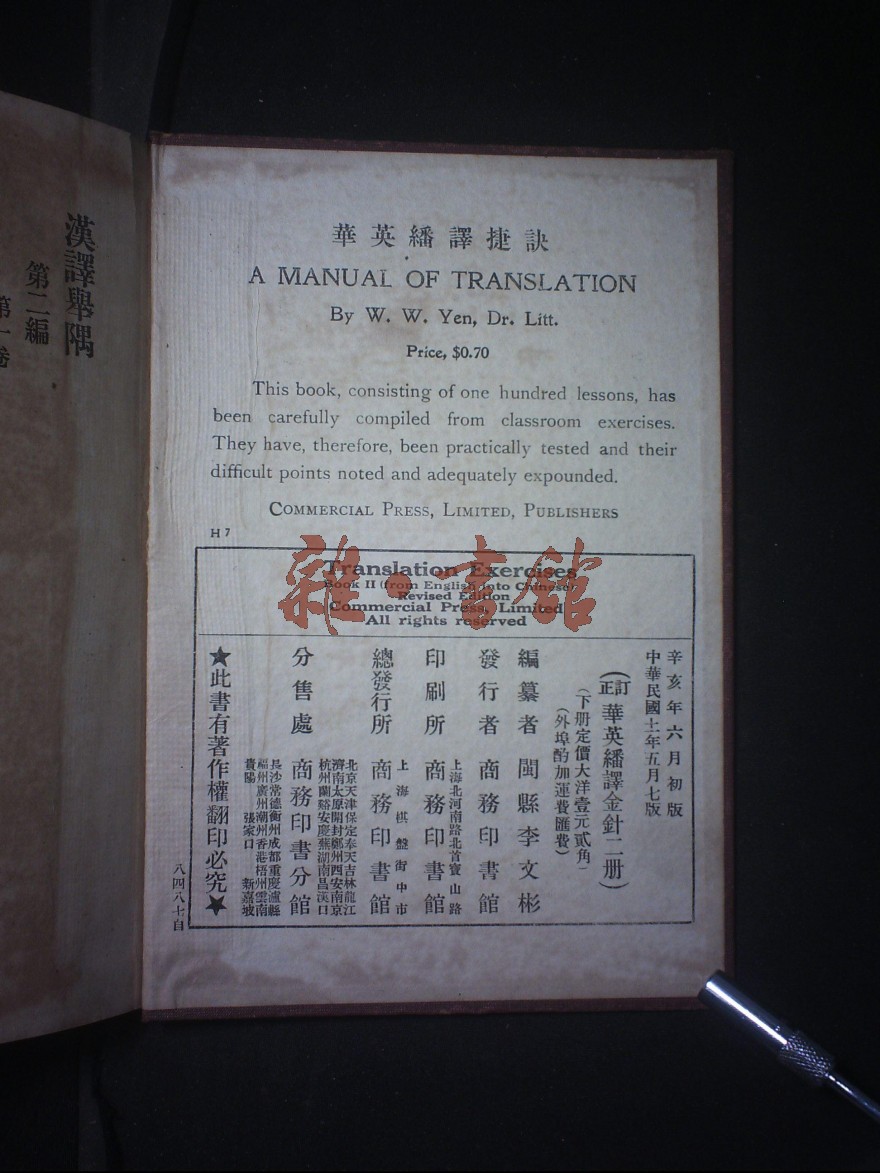 漢譯舉隅
第二編
第一卷
華英繙譯捷訣
A MANUAL OF TRANSLATION
By W. W. Yen, Dr. Litt.
Price, $0.70
This book, consisting of one hundred lessons, has
been carefully compiled from classroom exercises.
They have, therefore, been practically tested and their
difficult points noted and adequately expounded.
COMMERCIAL PRESS, LIMITED, PUBLISHERS
H 7
雜·書館
Translation Exercises
Book II (from English into Chinese)
Revised Edition
Commercial Press, Limited
All rights reserved
辛亥年六月初版
中華民國十一年五月七版
(訂正華英繙譯金針二册)
(下册定價大洋壹元貳角)
(外埠酌加運費匯費)
編纂者 閩縣李文彬
發行者 商務印書館
上海北河南路北首寶山路
印刷所 商務印書館
上海棋盤街中市
總發行所 商務印書館
北京天津保定奉天吉林龍江
濟南太原開封鄭州西安南京
杭州蘭谿安慶蕪湖南昌漢口
分售處 商務印書分館
長沙常德衡州成都重慶瀘縣
福州廣州潮州香港梧州雲南
貴陽 張家口 新嘉坡
★此書有著作權翻印必究★
八四八七自